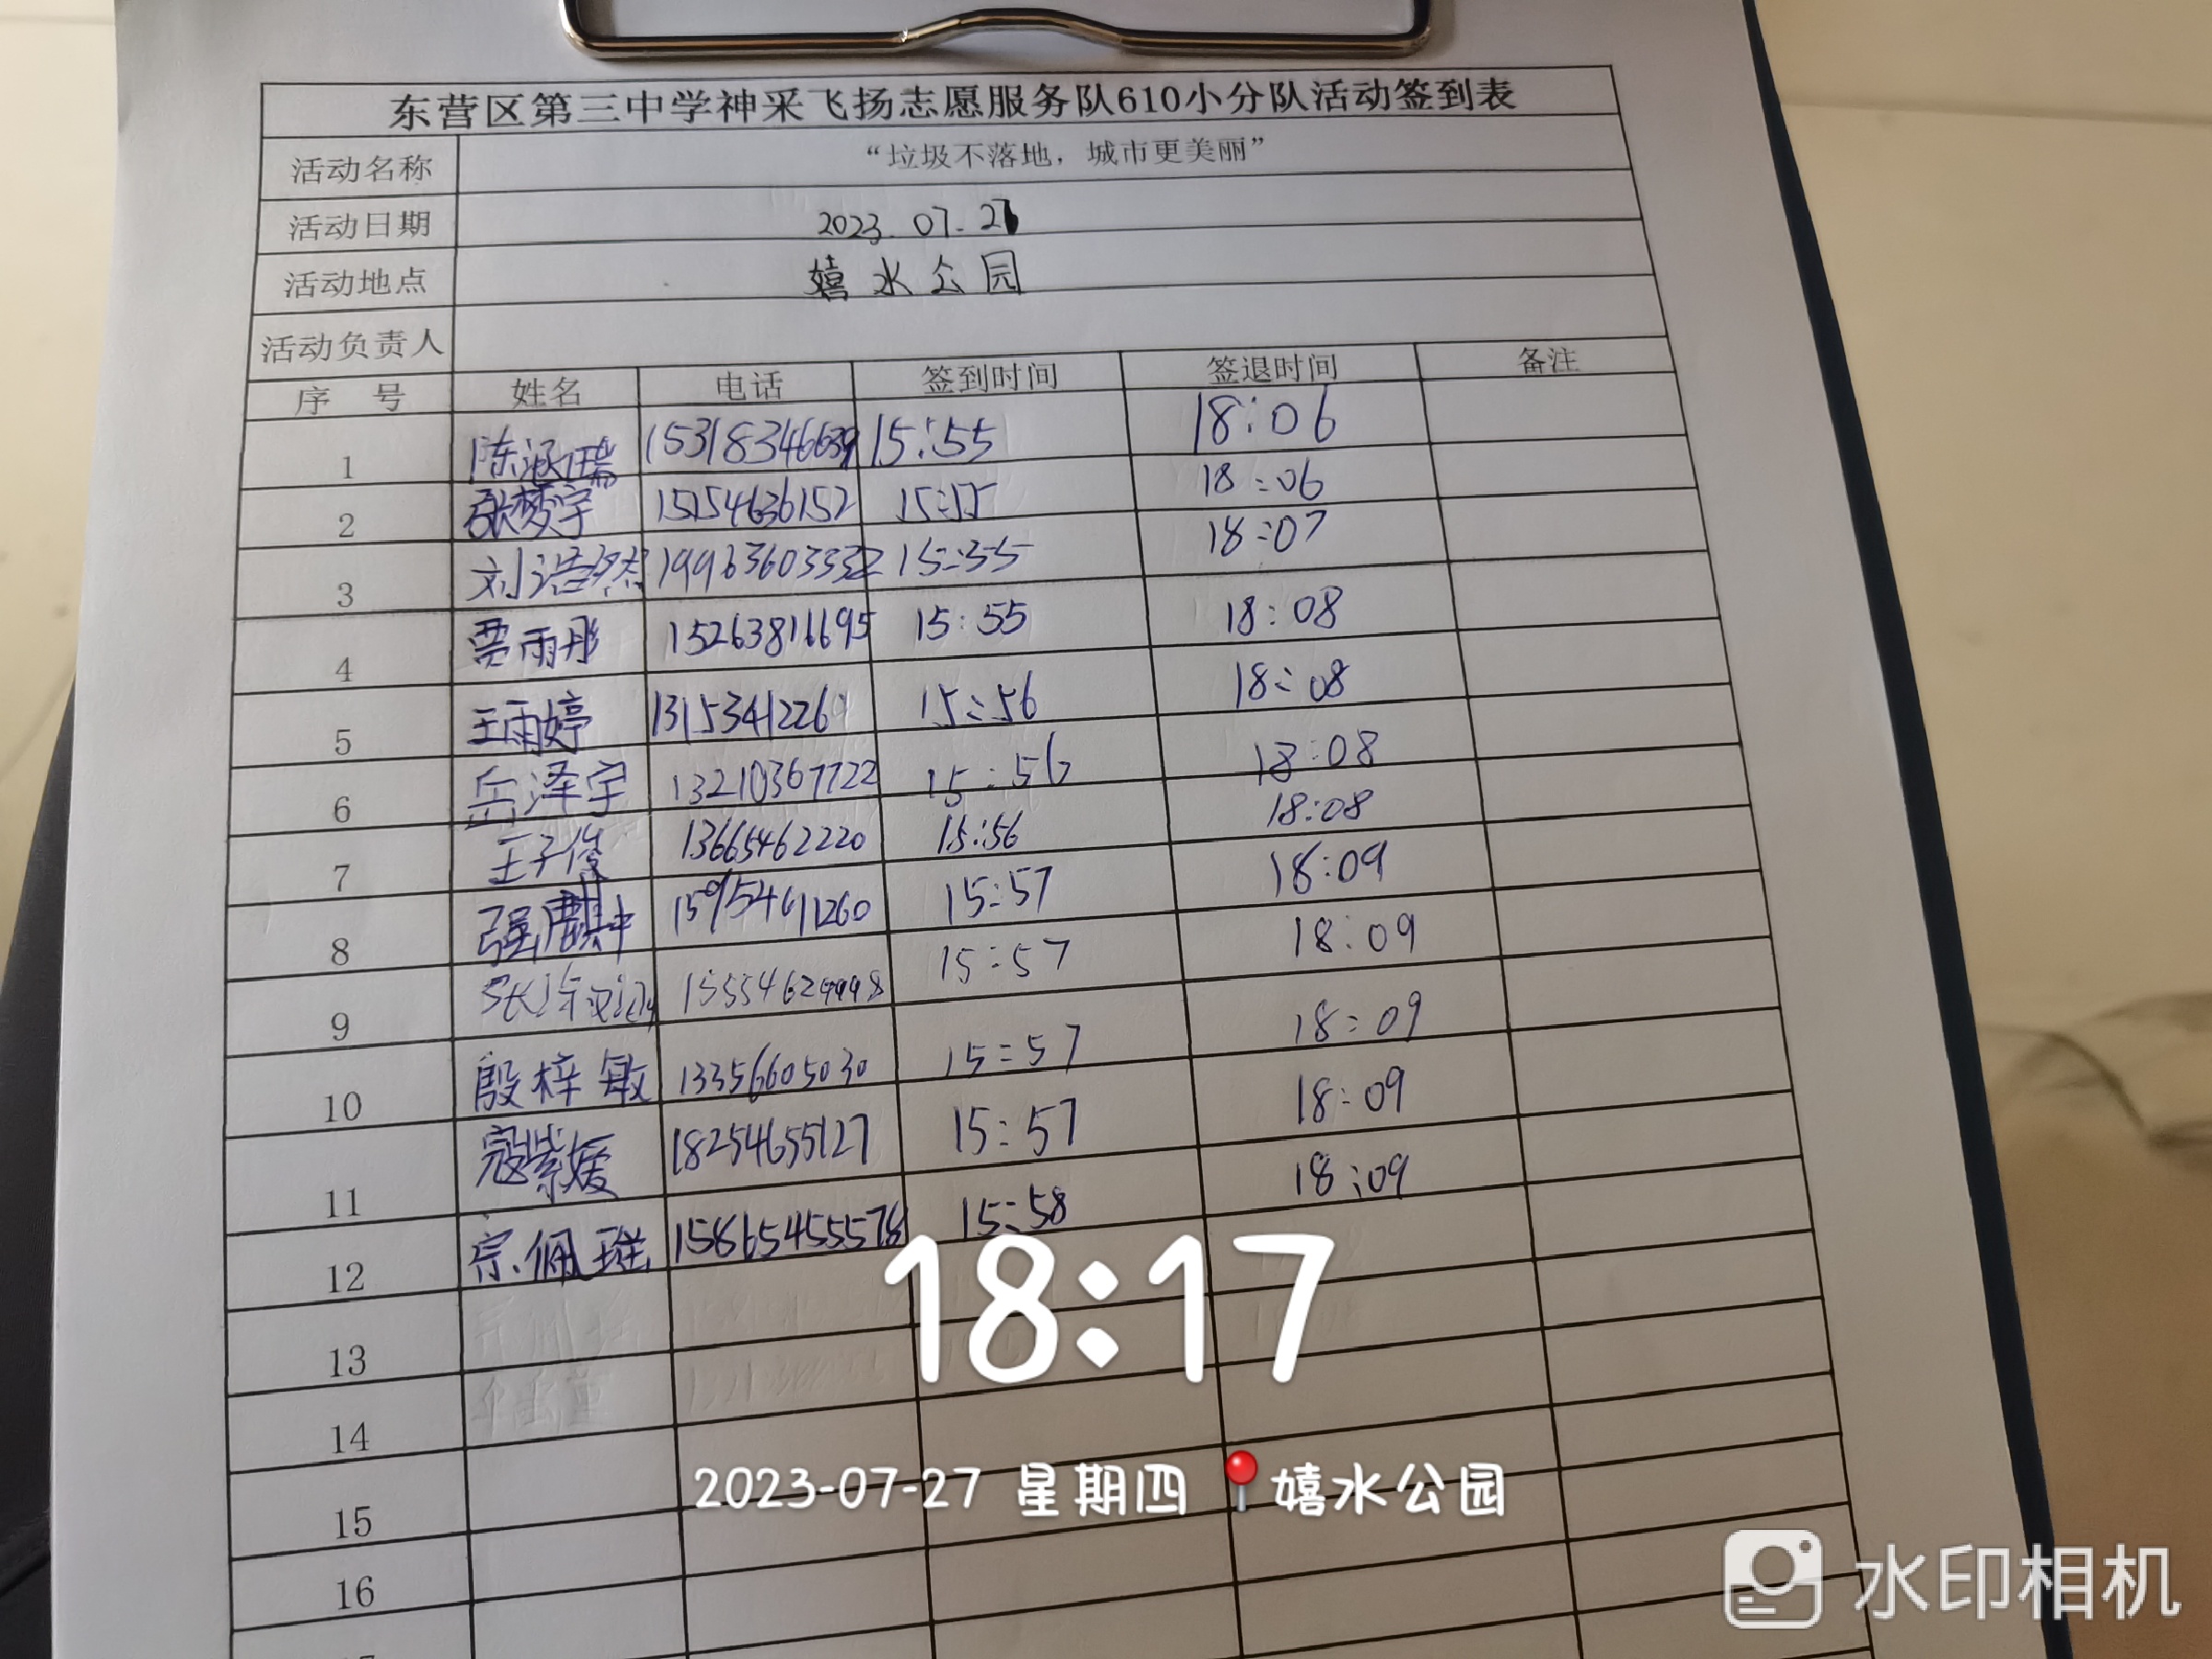 东营区第三中学神采飞扬志愿服务队610小分队活动签到表
活动名称 “垃圾不落地，城市更美丽”
活动日期 2023.07.27
活动地点 嬉水公园
活动负责人
序 号 姓名 电话 签到时间 签退时间 备注
1 陈涵瑞 15318346639 15:55 18:06
2 张梦宇 15154636152 15:55 18:06
3 刘浩然 19963603332 15:55 18:07
4 贾雨彤 15263811695 15:55 18:08
5 王雨婷 1315341226 15:56 18:08
6 岳泽宇 13210367722 15:56 18:08
7 王子俊 13665462220 15:56 18:08
8 强麒中 15954611260 15:57 18:09
9 15:57 18:09
10 殷梓敏 13356605030 15:57 18:09
11 寇紫媛 18254655127 15:57 18:09
12 宗佩瑶 15865455578 15:58 18:09
13
14
15
16
18:17
2023-07-27 星期四 嬉水公园
水印相机